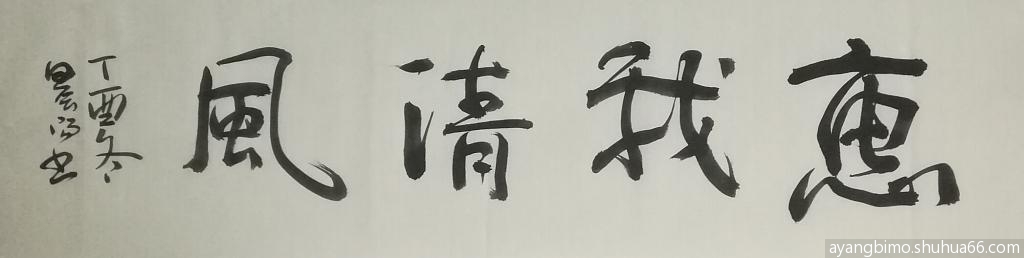 惠我清風
丁酉冬
晨阳书
ayangbimo.shuhua66.com